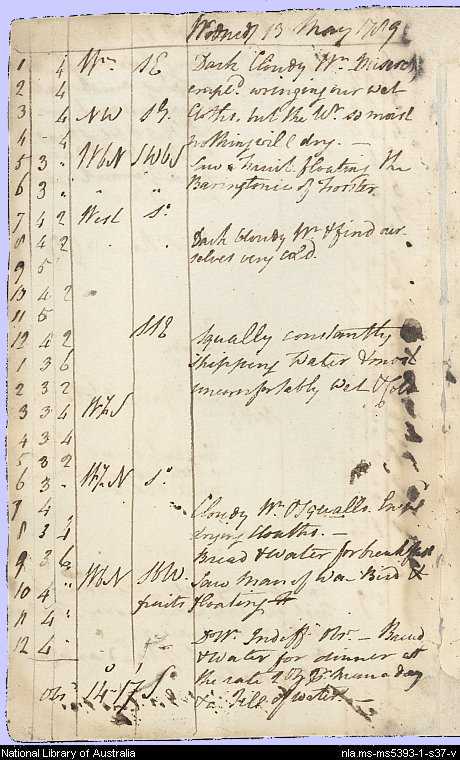 Wednesdy 13 May 1789
1 4 Wn SE Dark Cloudy Wr
2 4 wringing our wet
3 4 NW Cloths, but the Wr so moist
4 4 nothing will dry. —
5 3 " WbN SWbS Saw a Fruit floating the
6 3 " " " Baringtonia of Forster
7 4 2 West So
8 4 2 " " Dark Cloudy Wr & find our
9 5 selves very cold.
10 4 2
11 5
12 4 2 SSE Squally constantly
1 3 6 Shipping Water & most
2 3 2 uncomfortably wet & cold
3 3 4 W½S
4 3 4
5 3 2
6 3 " W½N So
7 4 Cloudy Wr & Squalls
8 3 4 drying Cloaths. —
9 3 6 Bread & Water for breakfast
10 4 " WbN SbW Saw Man of War Bird &
11 4 " fruits floating
12 4 " Wr Indifft Obs. — Bread
& Water for dinner at
the rate a day
Obs 14..17 S. & a Jill of water. —
National Library of Australia nla.ms-ms5393-1-s37-v